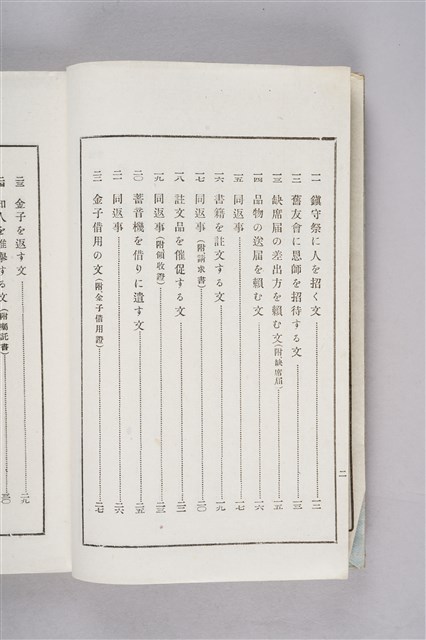 一一 鎭守祭に人を招く文 一二
一二 舊友會に恩師を招待する文 一三
一三 缺席届の差出方を頼む文(附缺席届) 一五
一四 品物の送届を頼む文 一六
一五 同返事 一七
一六 書籍を註文する文 一九
一七 同返事(附請求書) 二〇
一八 註文品を催促する文 二二
一九 同返事(附領收證) 二三
二〇 蓄音機を借りに遣す文 二五
二一 同返事 二六
二二 金子借用の文(附金子借用證) 二七
二
二三 金子を返す文 二九
人を推擧する文(附屬託書)